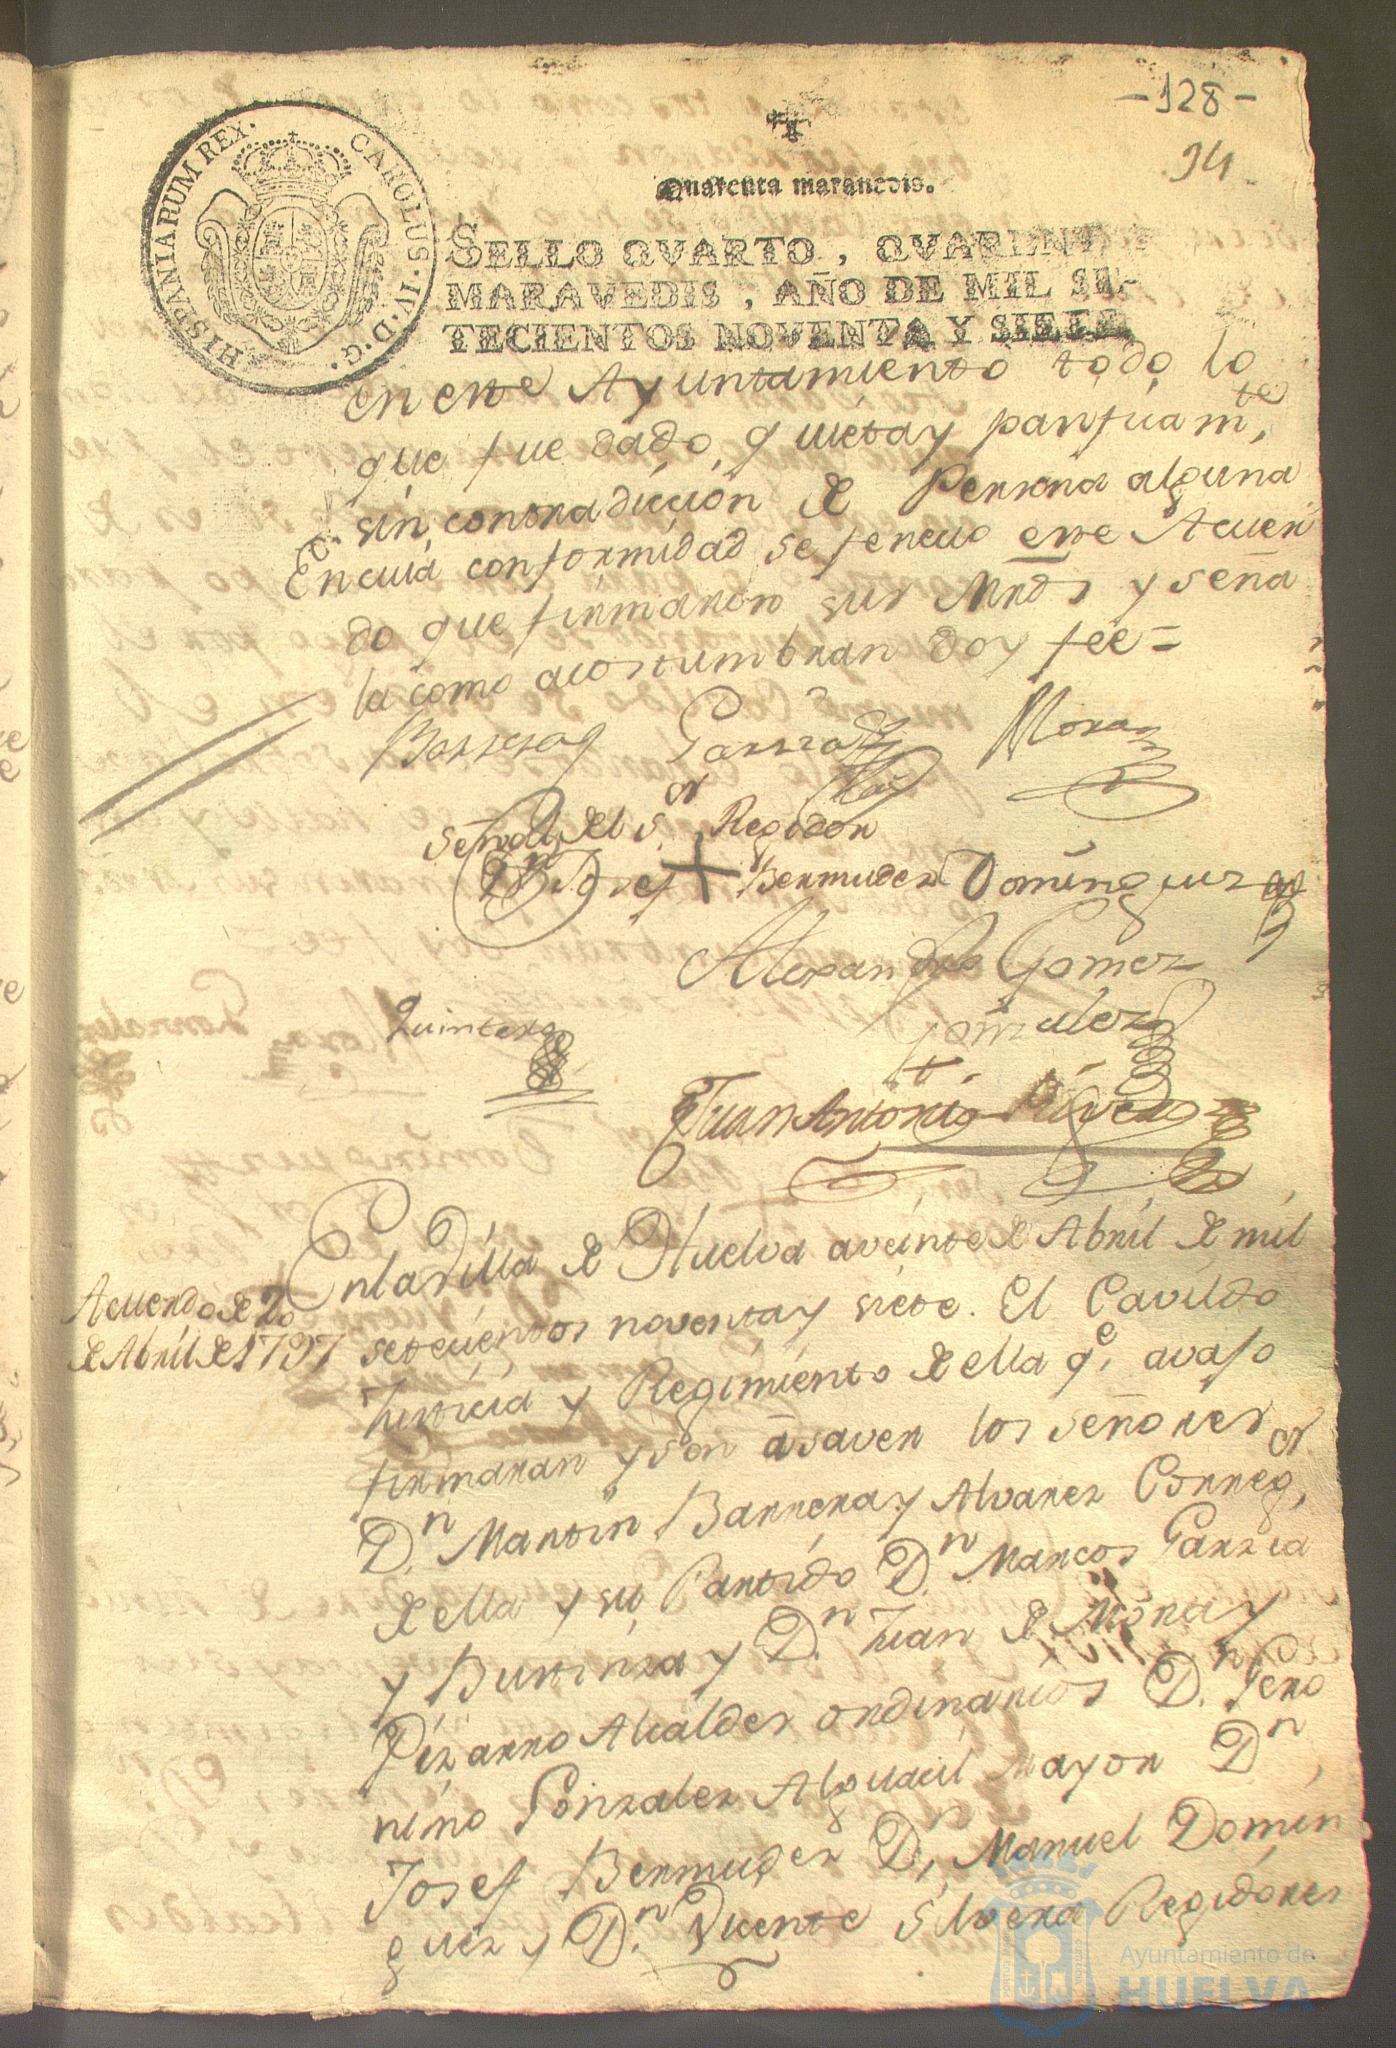 -128-
94
HISPANIARUM REX. CAROLUS. IV. D. G.
Quarenta marauedis.
SELLO QVARTO, QVARENT
MARAVEDIS, AÑO DE MIL SE-
TECIENTOS NOVENTA Y SIETE
en este Ayuntamiento todo lo
que fue dado, quieta y pacificam.te
sin contradiccion de Persona alguna
En cuia conformidad se fenecio este Acuer
do que firmaron sus Mrds y seña
la como acostumbran doy fee=
Barreray Garzia Mora
Señal del s.or Regidor
Dn Josef + Bermudez Dominguez
Alexandro Gomez
Quintero Gonzalez
Juan Antonio Rivera
Acuerdo de 20
de Abril de 1797
En la Villa de Huelva a veinte de Abril de mil
setecientos noventa y siete. El Cavildo
Justicia y Regimiento de ella q.e avajo
firmaran y son à saver los señores
D.n Martin Barrera y Alvarez Correg.or
de ella y su Partido D.n Marcos Garzia
y Bustinza y D.n Juan de Mora y
Pizarro Alcaldes ordinarios D.n Jero
nimo Gonzalez Alguacil mayor Dn
Josef Bermudez D. Manuel Domin
guez y D.n Vicente Silvera Regidores
Ayuntamiento de
HUELVA